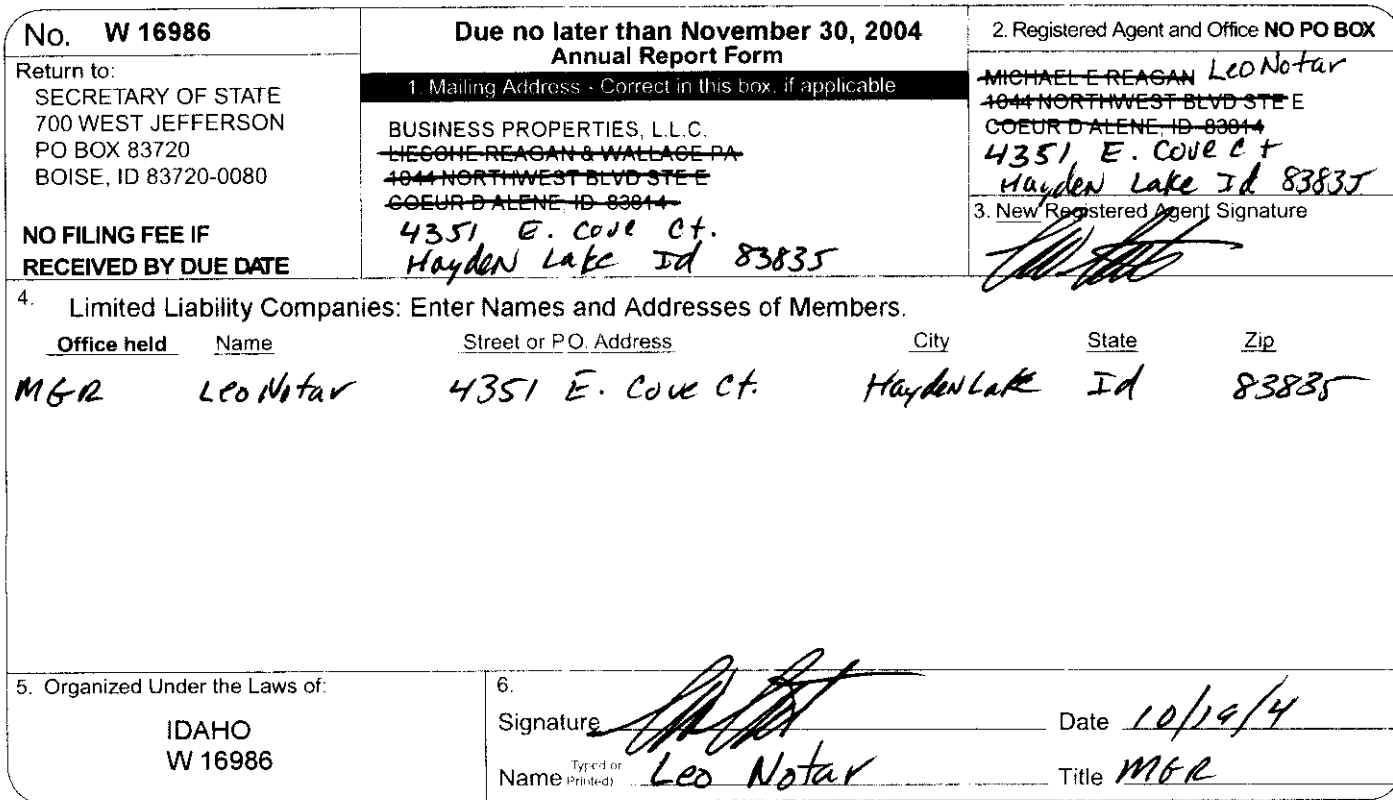 No. W 16986
Return to:
SECRETARY OF STATE
700 WEST JEFFERSON
PO BOX 83720
BOISE, ID 83720-0080
NO FILING FEE IF
RECEIVED BY DUE DATE
Due no later than November 30, 2004
Annual Report Form
1. Mailing Address - Correct in this box, if applicable
BUSINESS PROPERTIES, L.L.C.
LIESCHE REAGAN & WALLACE PA
1044 NORTHWEST BLVD STE E
COEUR D ALENE, ID 83814
4351 E. Cove Ct.
Hayden Lake Id 83835
2. Registered Agent and Office NO PO BOX
MICHAEL E REAGAN Leo Notar
1044 NORTHWEST BLVD STE E
COEUR D ALENE, ID 83814
4351 E. Cove Ct
Hayden Lake Id 83835
3. New Registered Agent Signature
4. Limited Liability Companies: Enter Names and Addresses of Members.
Office held Name Street or P.O. Address City State Zip
MGR Leo Notar 4351 E. Cove Ct. Hayden Lake Id 83835
5. Organized Under the Laws of:
IDAHO
W 16986
6.
Signature Date 10/19/4
Name (Typed or Printed) Leo Notar Title MGR